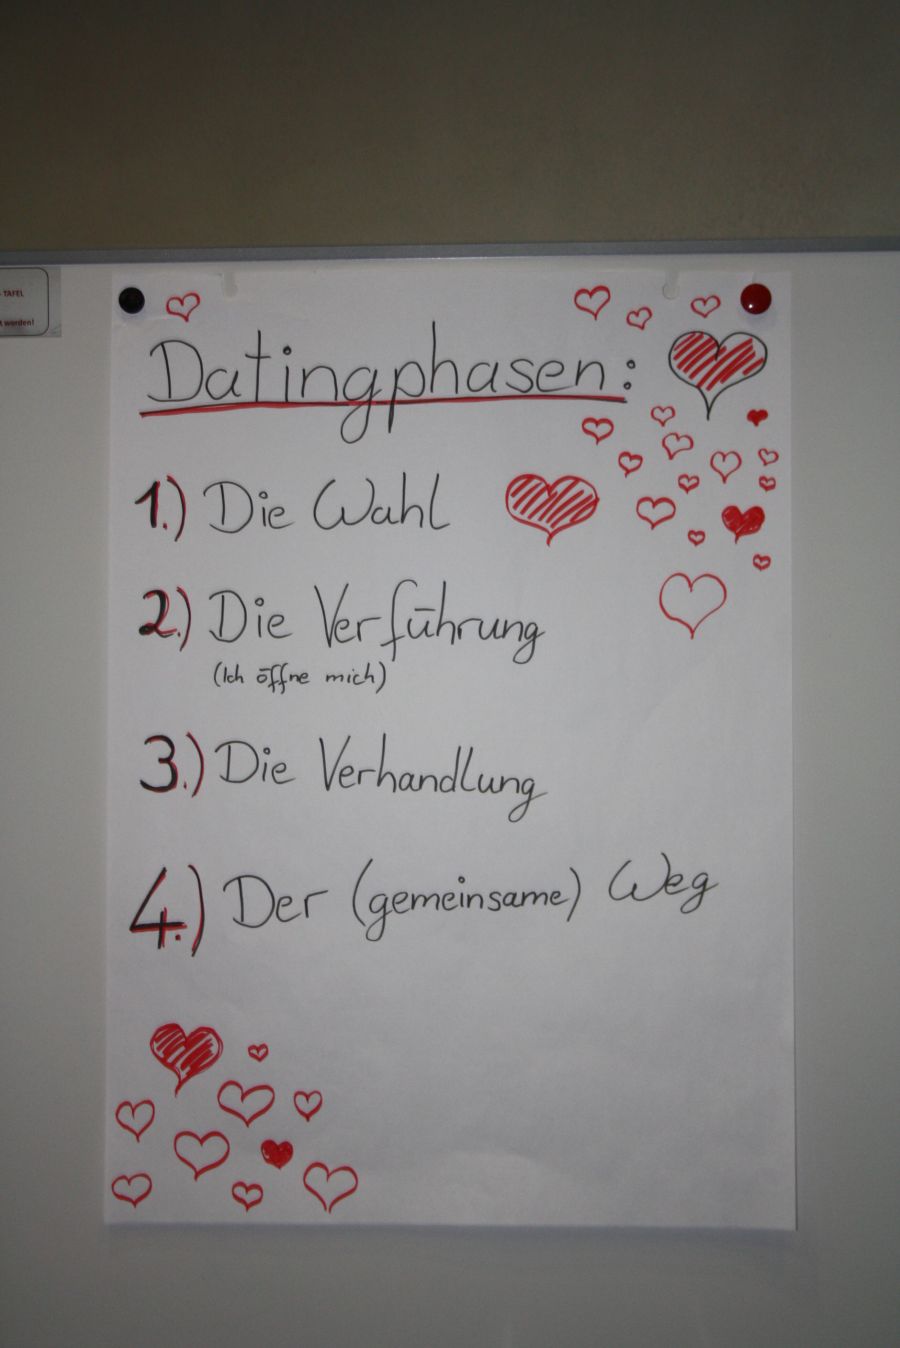 - TAFEL
t werden!
Datingphasen:
1.) Die Wahl
2.) Die Verführung
(Ich öffne mich)
3.) Die Verhandlung
4.) Der (gemeinsame) Weg